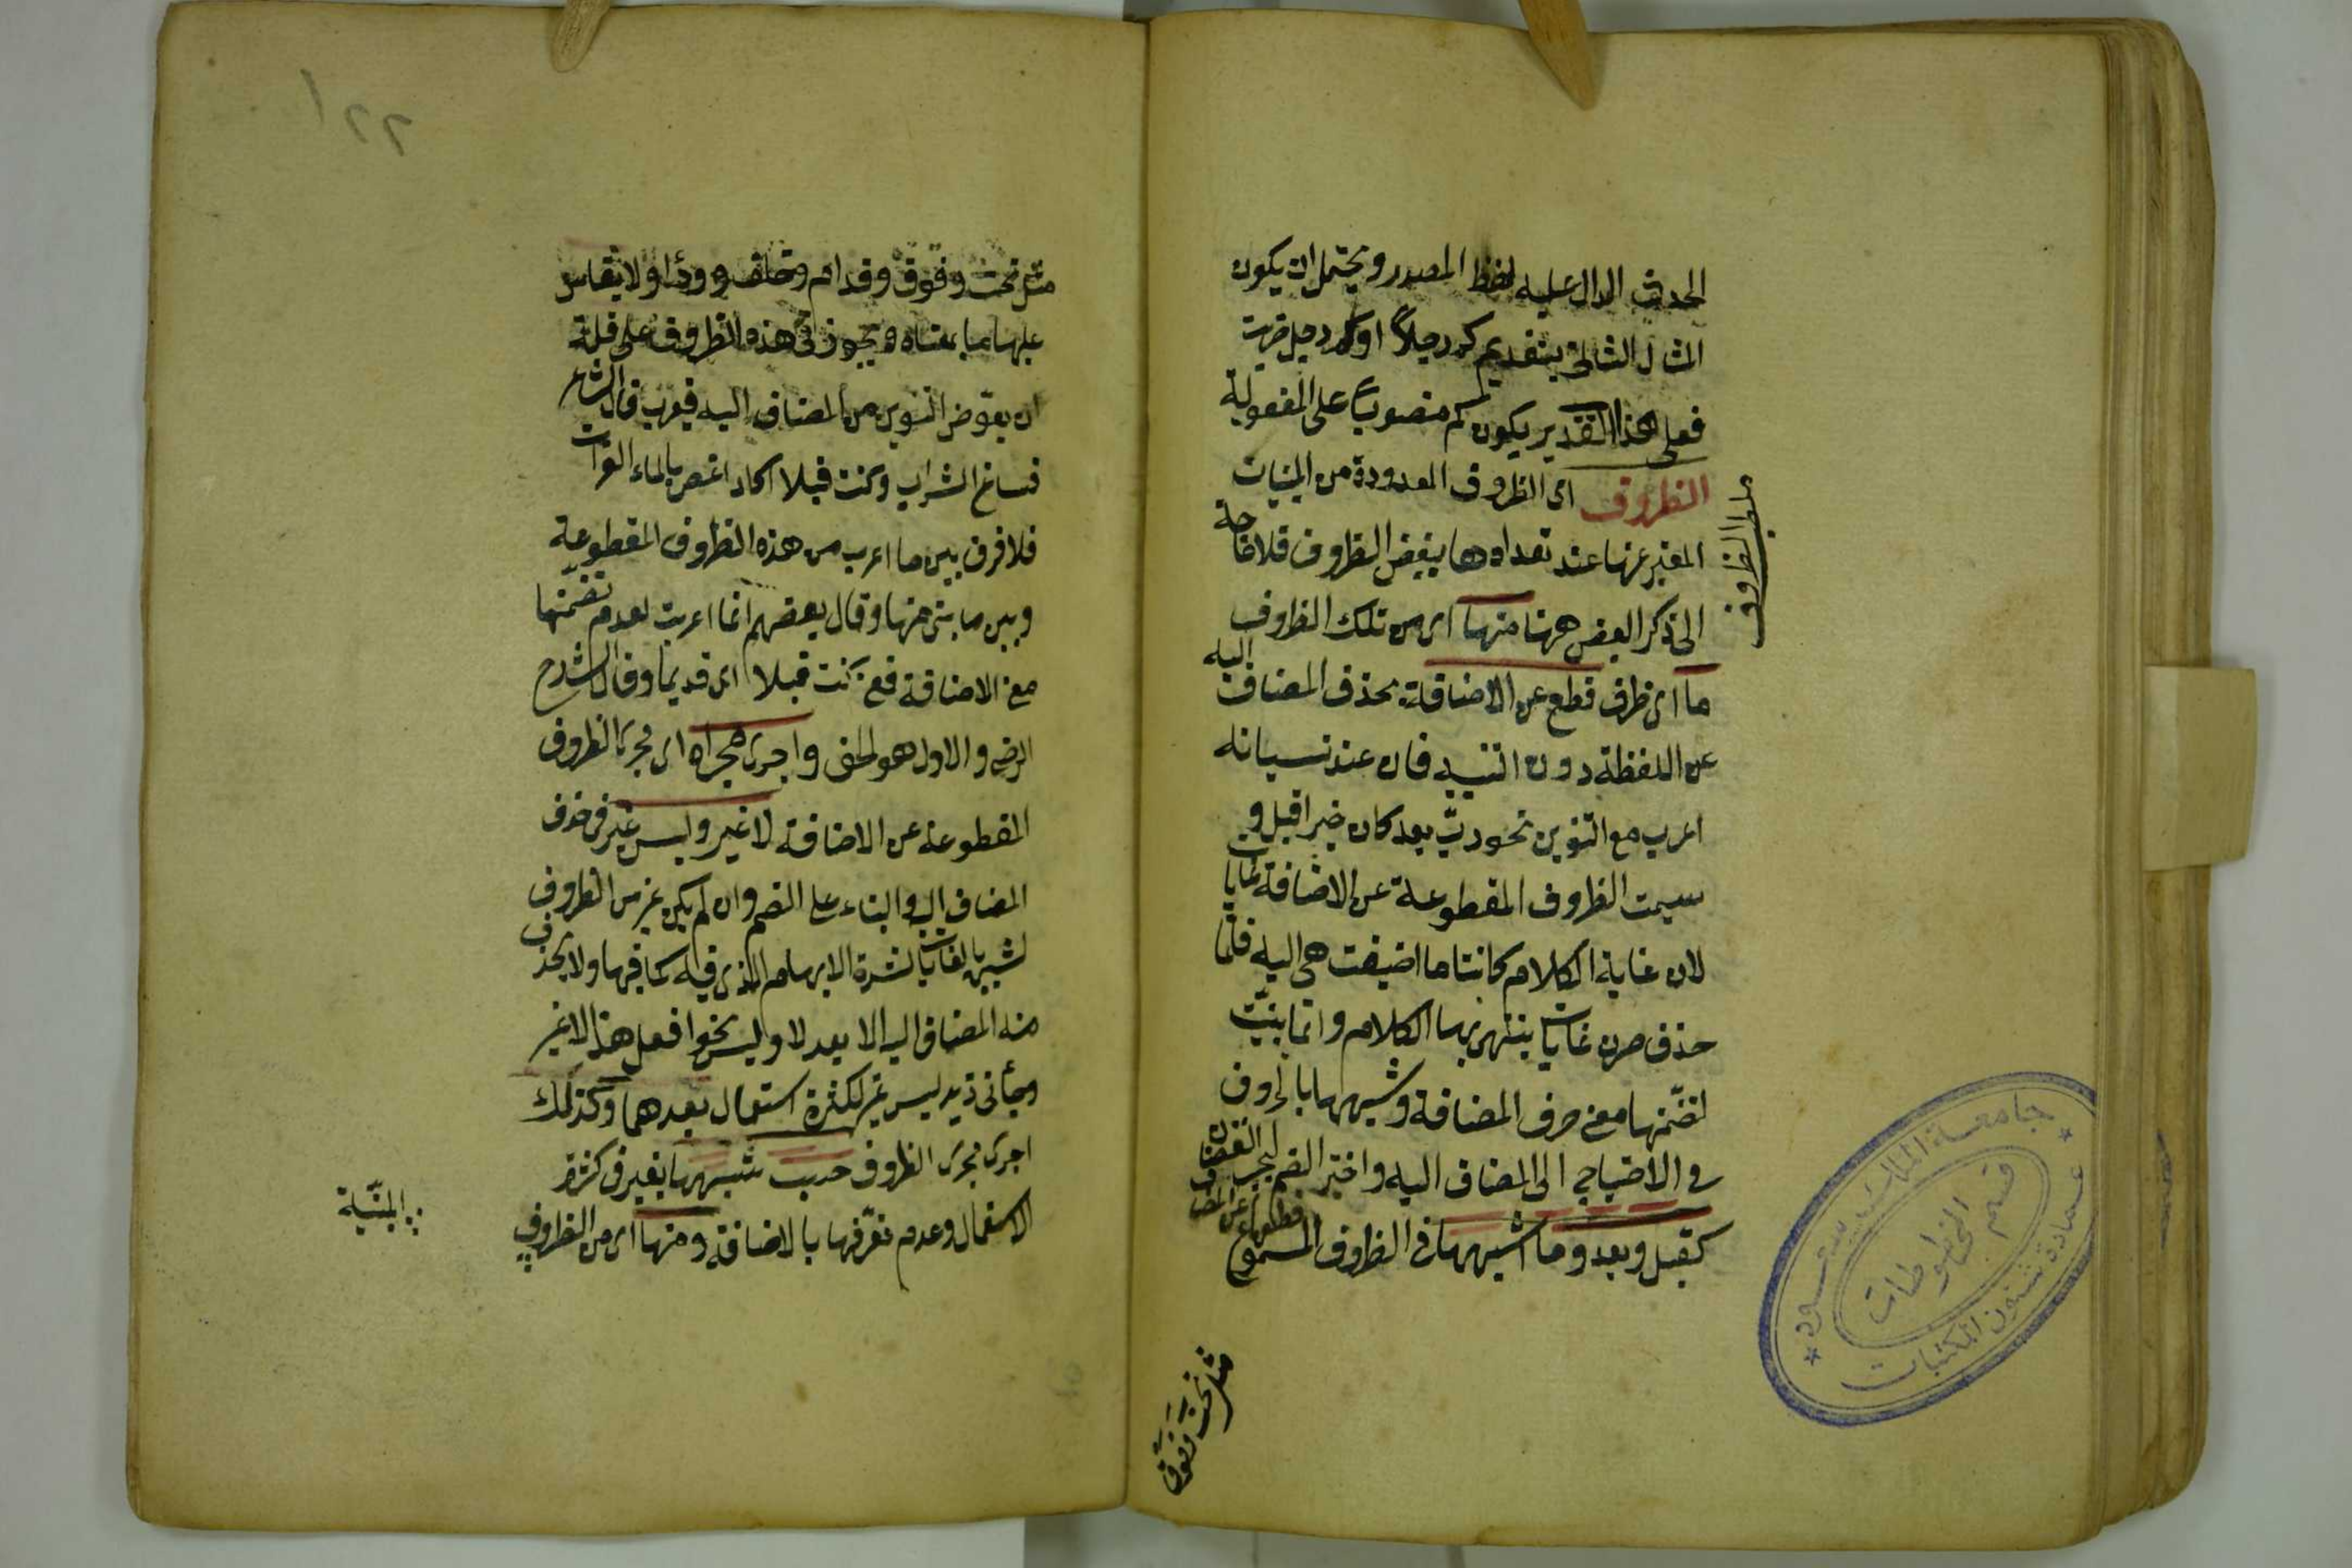 الحدث الدال عليه لفظ المصدر ويحتمل ان يكون
المثال الثاني بتقديم كم رجلاً او كم رجل ضربت
فعلى هذا التقدير يكون كم منصوباً على المفعولية
الظروف اى الظروف المعدودة من المبنيات
المعبر عنها عند تعدادها ببعض الظروف فلا حاجة
الى ذكر البعض ههنا منها اى من تلك الظروف
ما اى ظرف قطع عن الاضافة بحذف المضاف اليه
عن اللفظة دون النية فان عند نسيانه
اعرب مع التنوين نحو ربّ بعد كان خيرا قبل و
سميت الظروف المقطوعة عن الاضافة غايات
لان غاية الكلام كانت ما اضيفت هى اليه فلمّا
حذف صرن غايات ينتهى بها الكلام وانما بنيت
لتضمّنها معنى حرف المضافة وشبهها بالحروف
فى الاحتياج الى المضاف اليه واختير الضم لجبر النقصان
كقبل وبعد وما اشبههما فى الظروف المسموع
مطلب الظروف
مثل تحت وفوق
مثل تحت وفوق وقدام وخلف ووراء ولا يقاس
عليها ما بمعناه ويجوز فى هذه الظروف على قلة
ان يعوّض التنوين من المضاف اليه فيعرب قال الشاعر
فساغ الشراب وكنت قبلا اكاد اغص بالماء الفرات
فلا فرق بين ما اعرب من هذه الظروف المقطوعة
وبين ما بنى منها وقال بعضهم انما اعربت لعدم تضمّنها
معنى الاضافة فمعنى كنت قبلا اى قديما وقال الشارح
الرضى والاول هو الحق واجرى مجراه اى مجرى الظروف
المقطوعة عن الاضافة لا غير وليس غير فى حذف
المضاف اليه والبناء على الضم وان لم يكن غير من الظروف
لشبهه بالغايات لشدة الابهام الذى فيه كما فيها ولا يحذف
منه المضاف اليه الا بعد لا وليس نحو افعل هذا لا غير
وجأنى زيد ليس غير لكثرة استعمال بعدهما وكذلك
اجرى مجرى الظروف حسب شبهها بغير فى كثرة
الاستعمال وعدم تعرّفها بالاضافة ومنها اى من الظروف
المبنيّة
٢٢
جامعة الملك سعود
عمادة شئون المكتبات
قسم المخطوطات